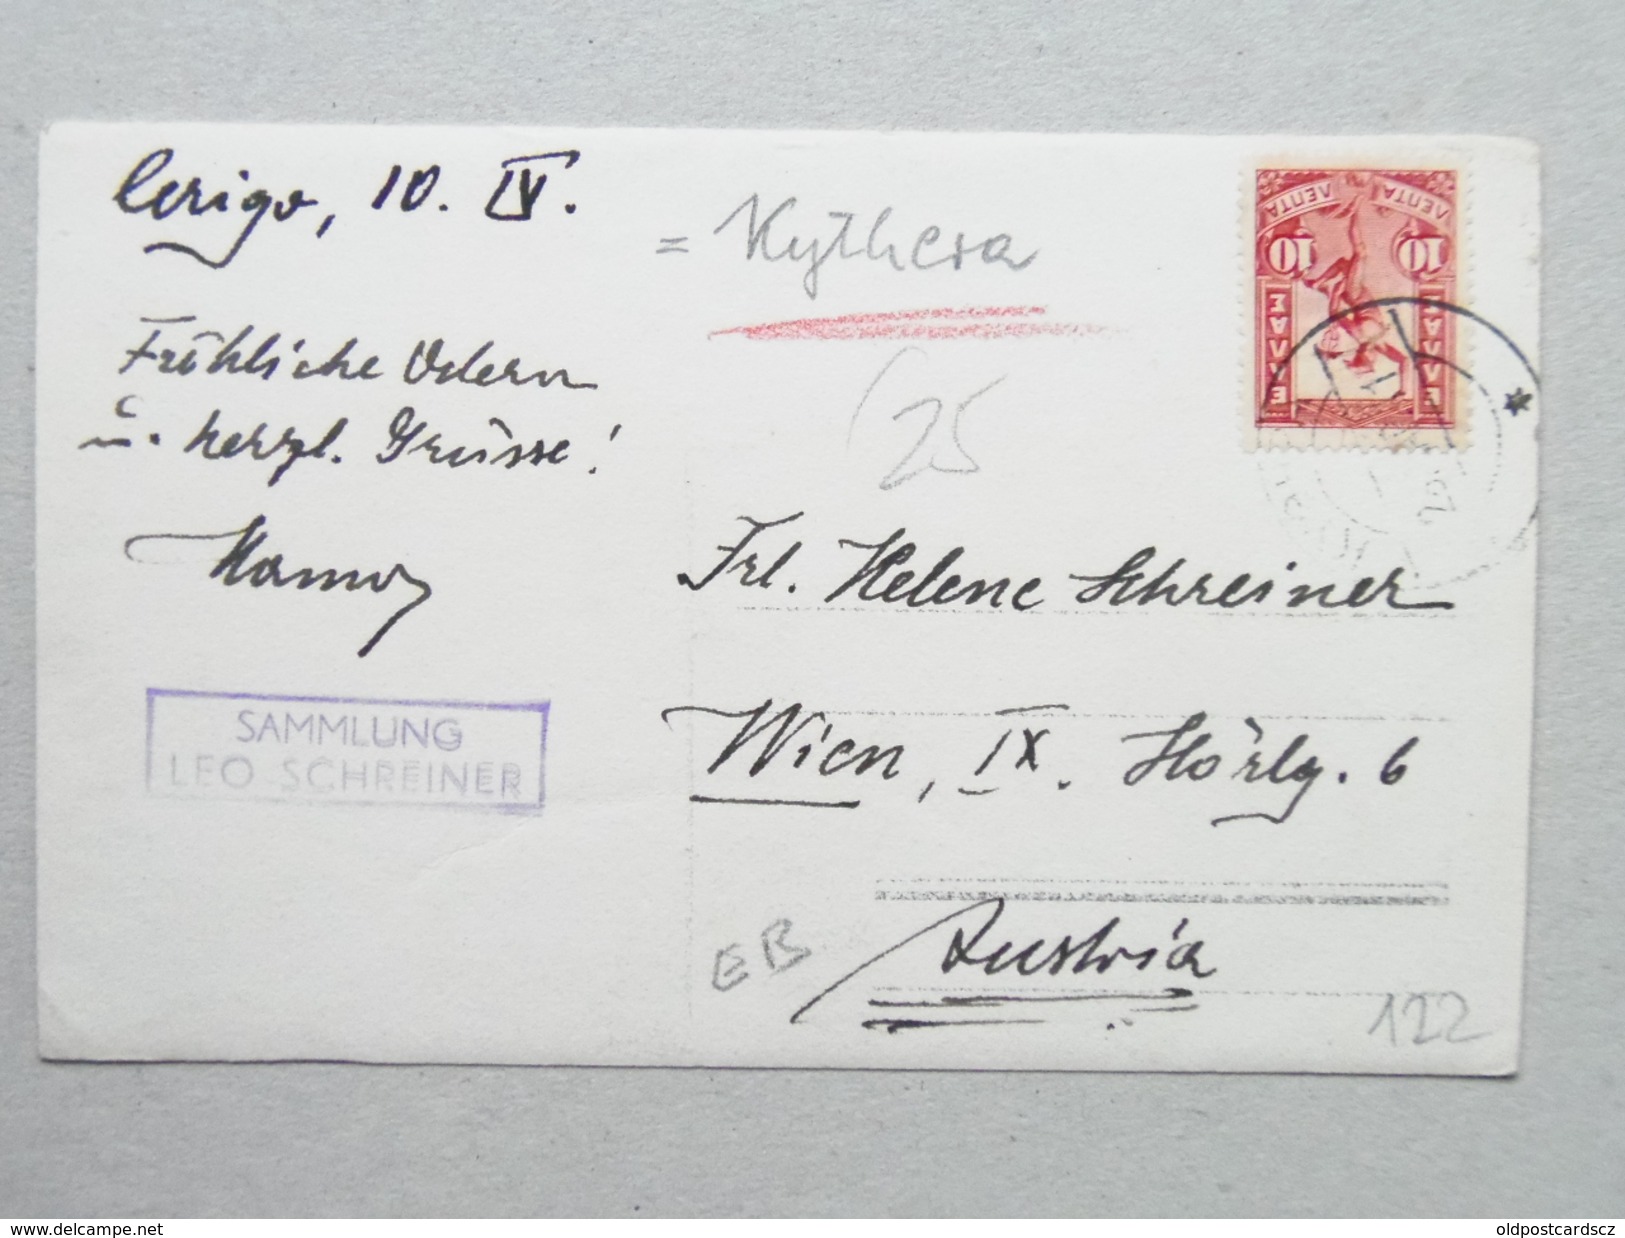 Cerigo, 10. IV.
= Kythera
Fröhliche Ostern
u. herzl. Grüsse!
25
Frl. Helene Schreiner
Wien, IX. Hörlg. 6
Austria
SAMMLUNG
LEO SCHREINER
EB
122
ΛΕΠΤΑ ΛΕΠΤΑ
10 10
ΕΛΛΑΣ ΕΛΛΑΣ
www.delcampe.net
oldpostcardscz